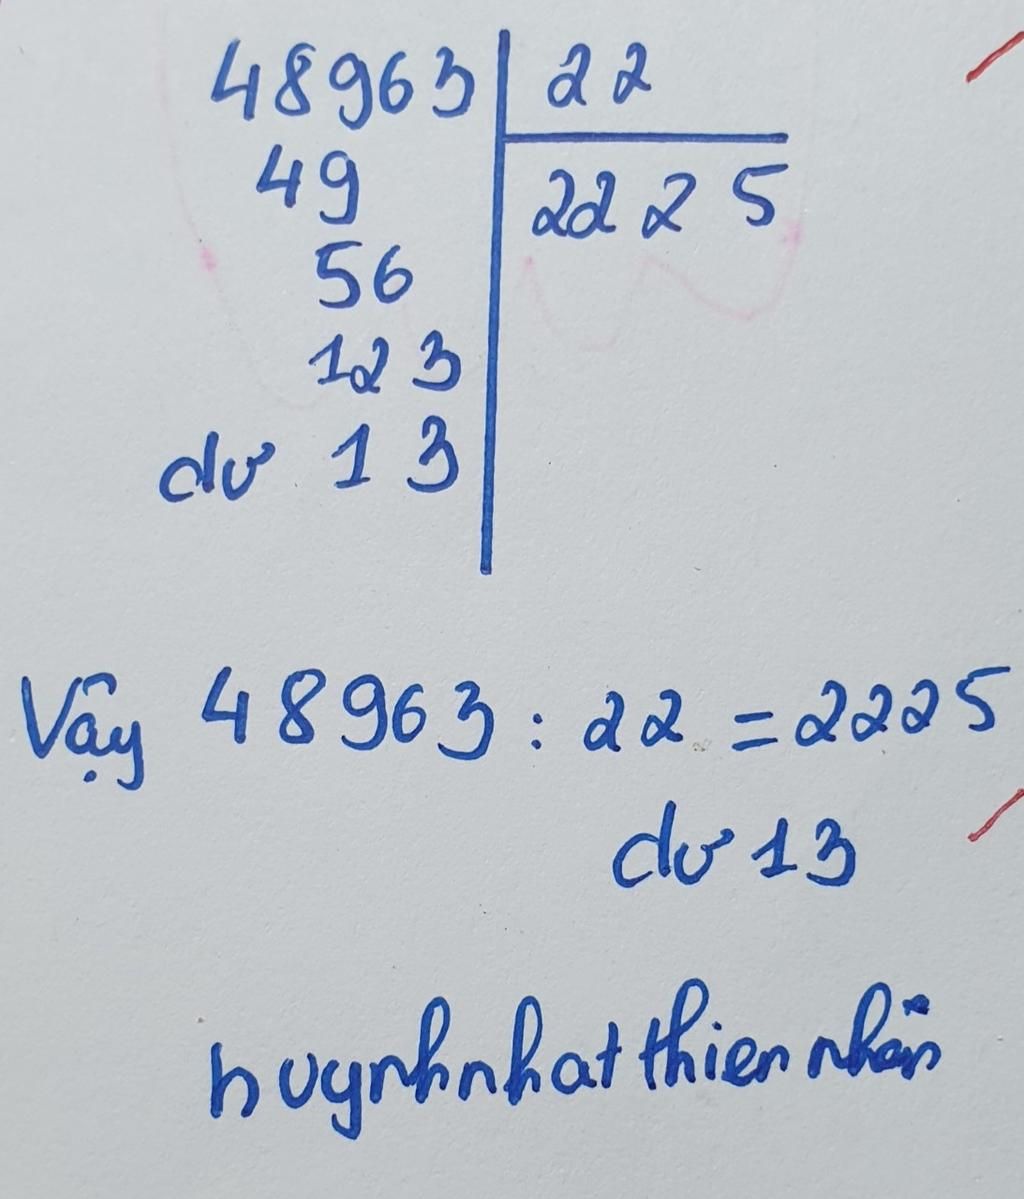 48963 22
49 2225
56
123
dư 13
Vậy 48963 : 22 = 2225
dư 13
huynhnhatthien nhân